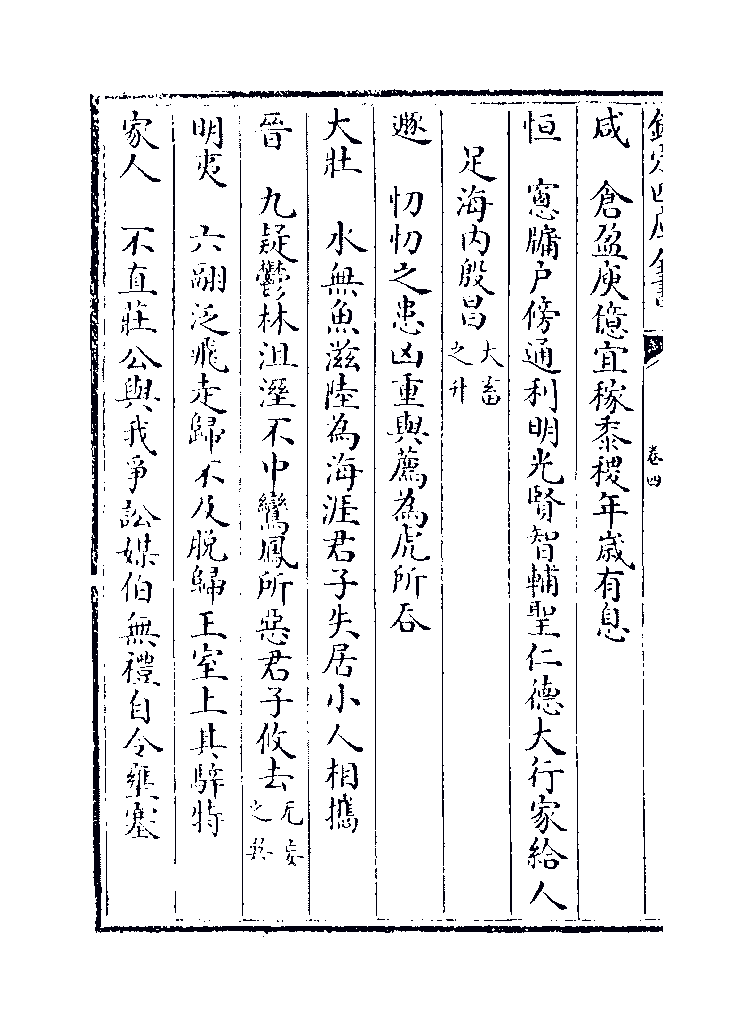 欽定四庫全書
卷四
咸　倉盈庾億宜稼黍稷年歲有息
恒　窻牖户傍通利明光賢智輔聖仁德大行家給人
足海内殷昌大畜之升
遯　忉忉之患凶重與薦為虎所吞
大壯　水無魚滋陸為海涯君子失居小人相攜
晉　九疑鬱林沮溼不中鸞鳳所惡君子攸去无妄之兑
明夷　六翮泛飛走歸不及脱歸王室上其騂特
家人　不直莊公與我爭訟媒伯無禮自令壅塞